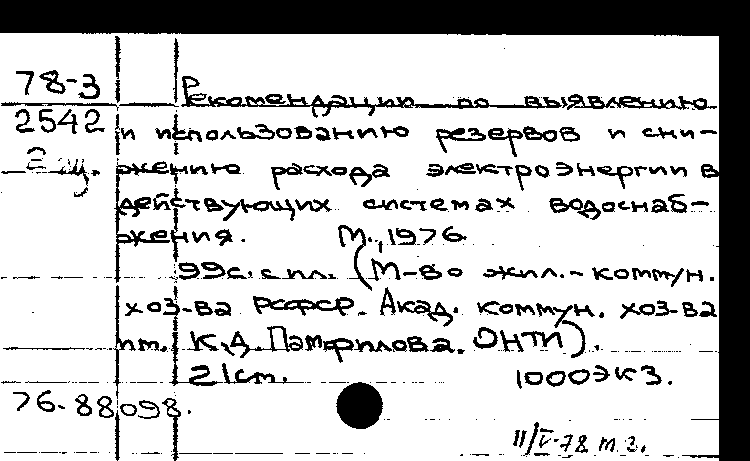 78-3
Рекомендации по выявлению
2542
и использованию резервов и сни-
2
жению расхода электроэнергии в
действующих системах водоснаб-
жения. М., 1976.
99с. с ил. (М-во жил.-коммун.
хоз-ва РСФСР. Акад. коммун. хоз-ва
им. К.Д. Памфилова. ОНТИ).
21см. 1000экз.
76-88098.
11/V-78 т.г.